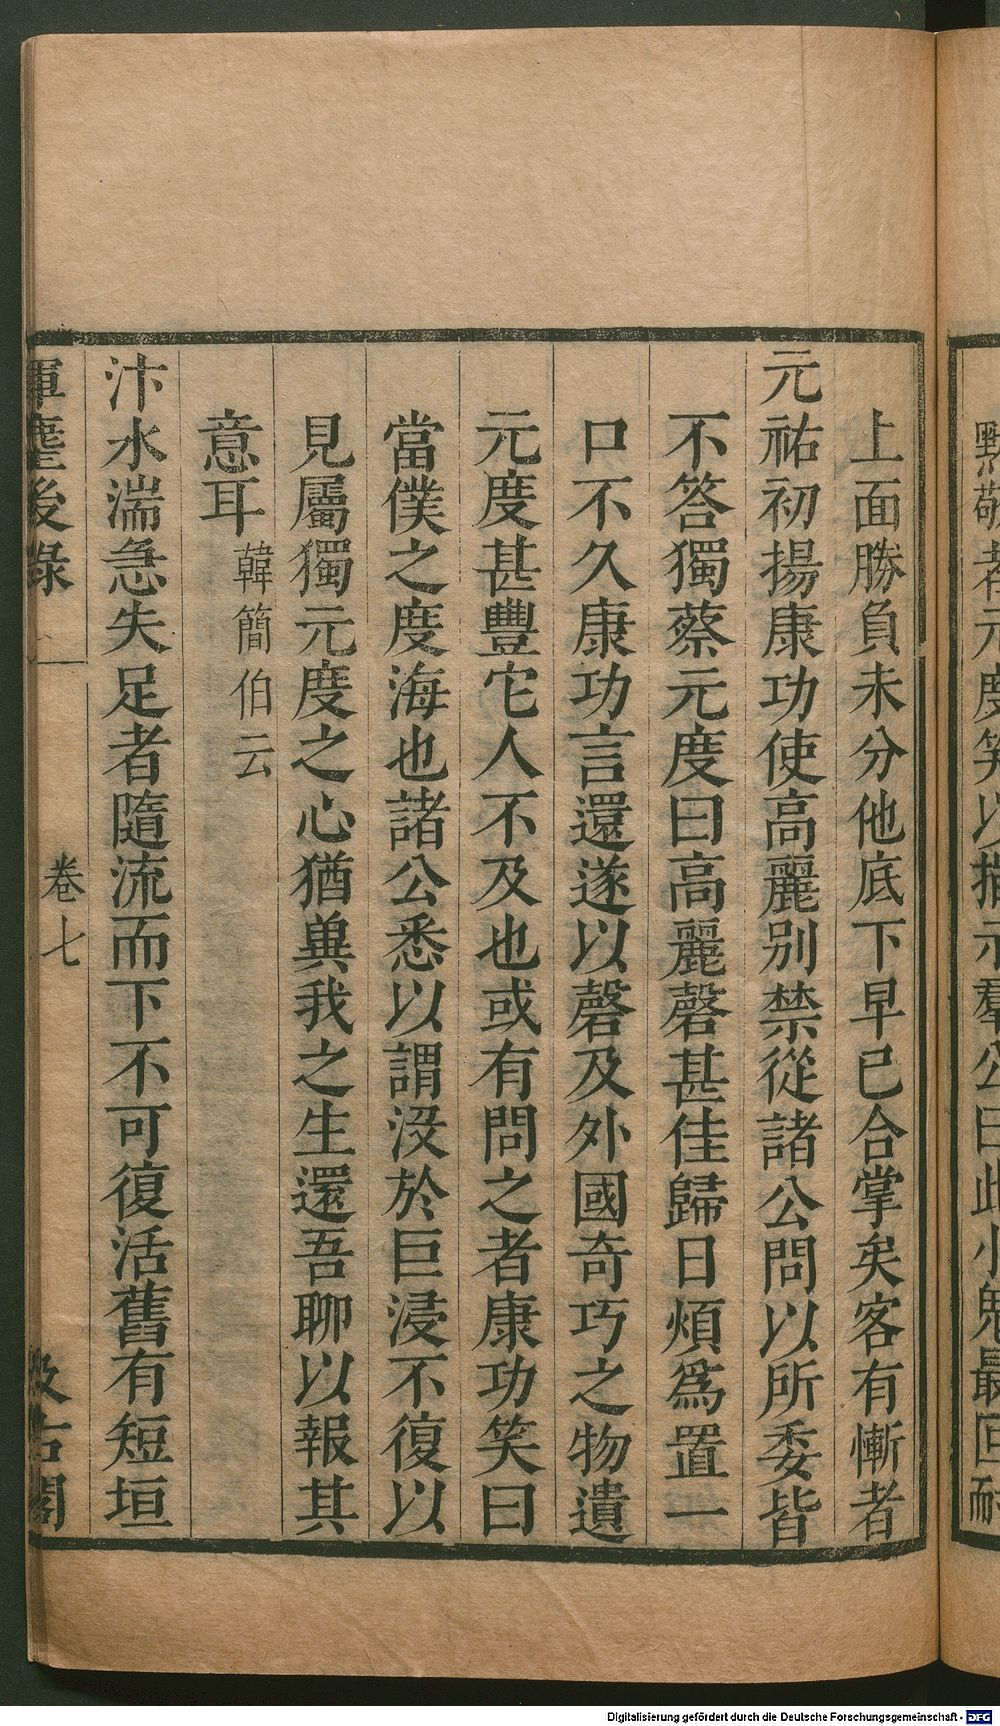 黙敬者元度笑以指示羣公曰此小鬼最叵耐
上面勝負未分他底下早已合掌矣客有慚者
元祐初揚康功使高麗别禁從諸公問以所委皆
不答獨蔡元度曰高麗磬甚佳歸日煩爲置一
口不久康功言還遂以磬及外國奇巧之物遺
元度甚豐它人不及也或有問之者康功笑曰
當僕之度海也諸公悉以謂没於巨浸不復以
見屬獨元度之心猶兾我之生還吾聊以報其
意耳韓簡伯云
汴水湍急失足者隨流而下不可復活舊有短垣
揮麈後錄 卷七 汲古閣
Digitalisierung gefördert durch die Deutsche Forschungsgemeinschaft - DFG